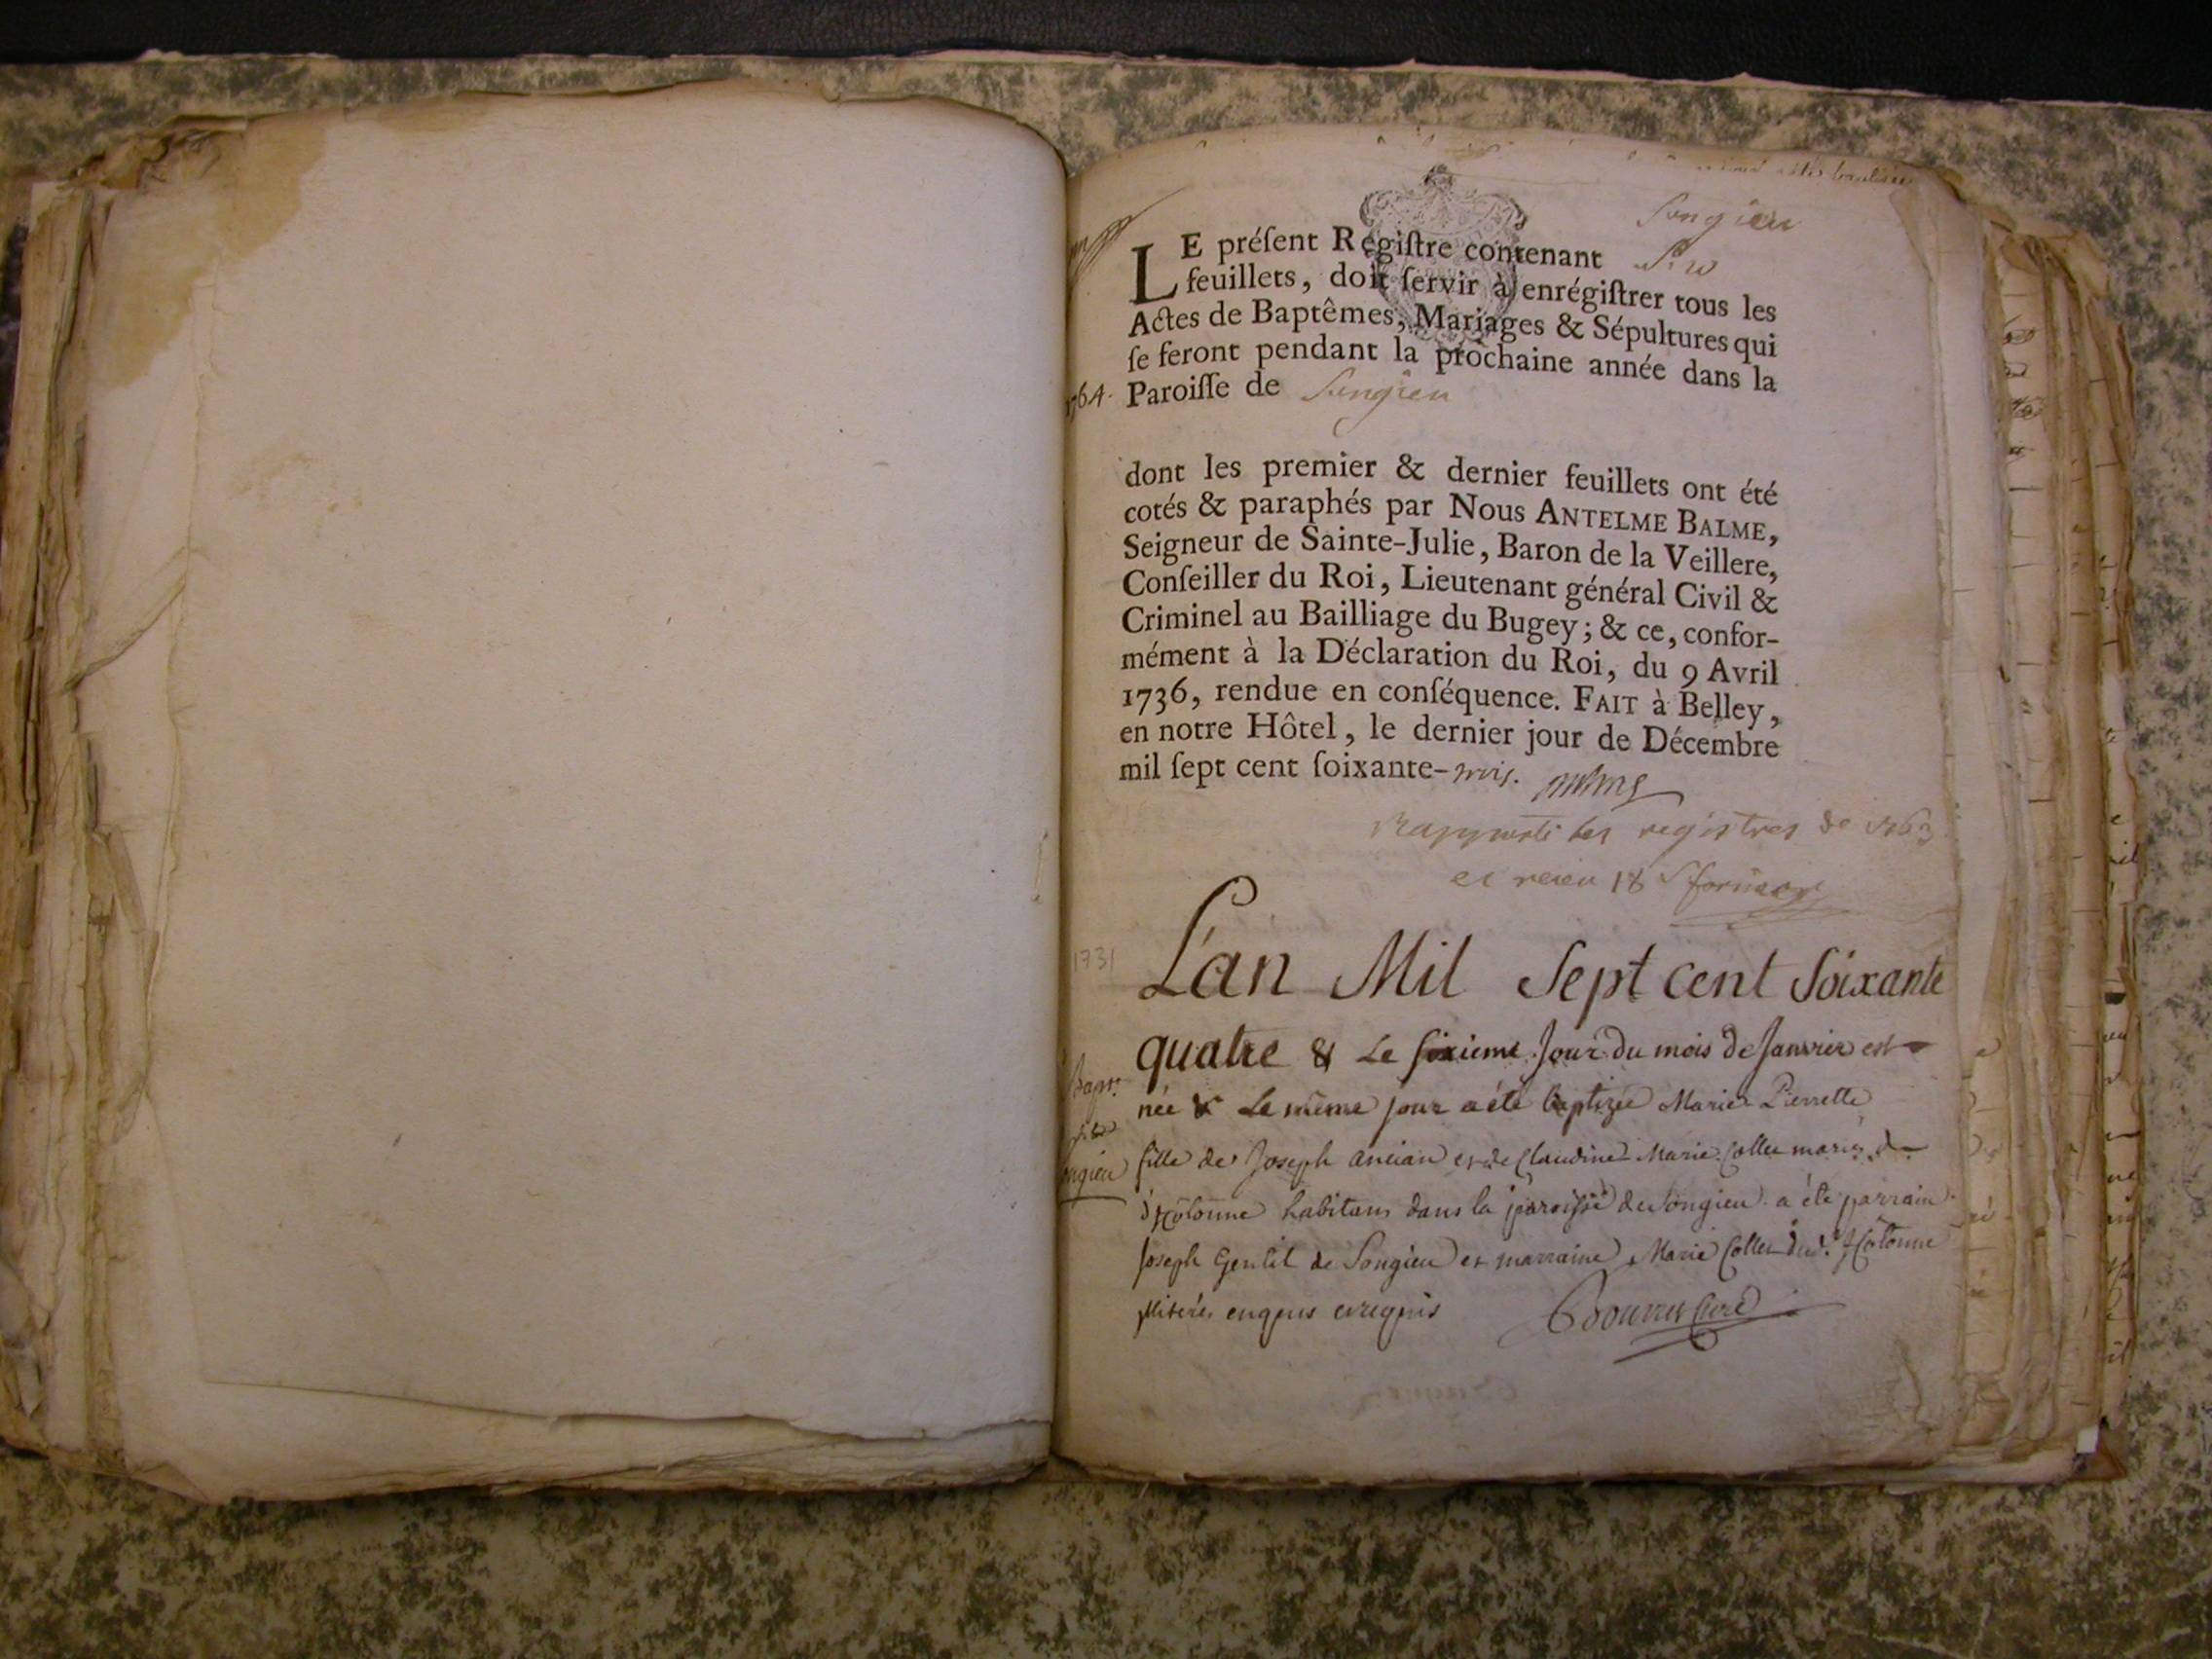 Songieu
LE préſent Regiſtre contenant Six
feuillets, doit ſervir à enrégiſtrer tous les
Actes de Baptêmes, Mariages & Sépultures qui
ſe feront pendant la prochaine année dans la
1764. Paroiſſe de Songieu
dont les premier & dernier feuillets ont été
cotés & paraphés par Nous ANTELME BALME,
Seigneur de Sainte-Julie, Baron de la Veillere,
Conſeiller du Roi, Lieutenant général Civil &
Criminel au Bailliage du Bugey; & ce, confor-
mément à la Déclaration du Roi, du 9 Avril
1736, rendue en conſéquence. FAIT à Belley,
en notre Hôtel, le dernier jour de Décembre
mil ſept cent ſoixante-trois.
Rapporté les registres de 1763
et receu 18
1731
L'an Mil Sept cent Soixante
quatre & Le Sixieme Jour du mois de Janvier est
née & Le même jour a été baptizée Marie Pierrette
fille de Joseph Ancian et de Claudine Marie Collet mariés
habitans dans la paroisse de Songieu a été parrain
Joseph Gentil de Songieu et marraine Marie Collet
Illiterés enquis et requis Bourret Curé
Bapt.
ongieu